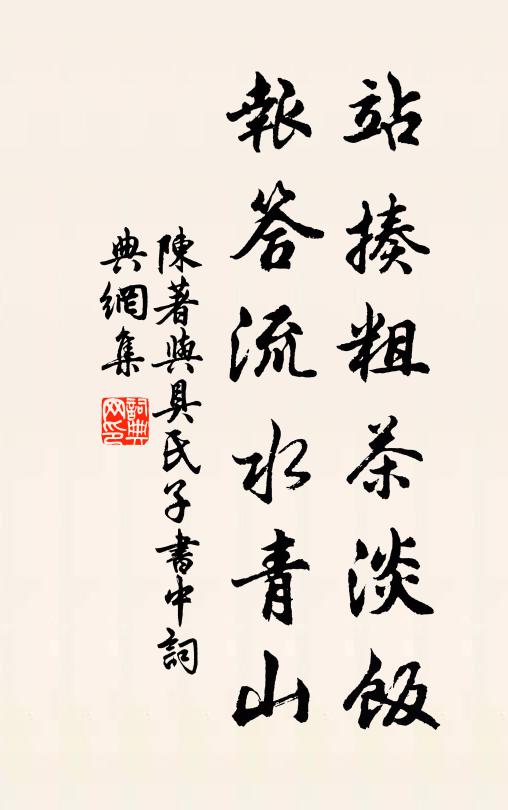 站揍粗茶淡飯
報答流水青山
陳著與具氏子書中詞
典網集
詞典
网印